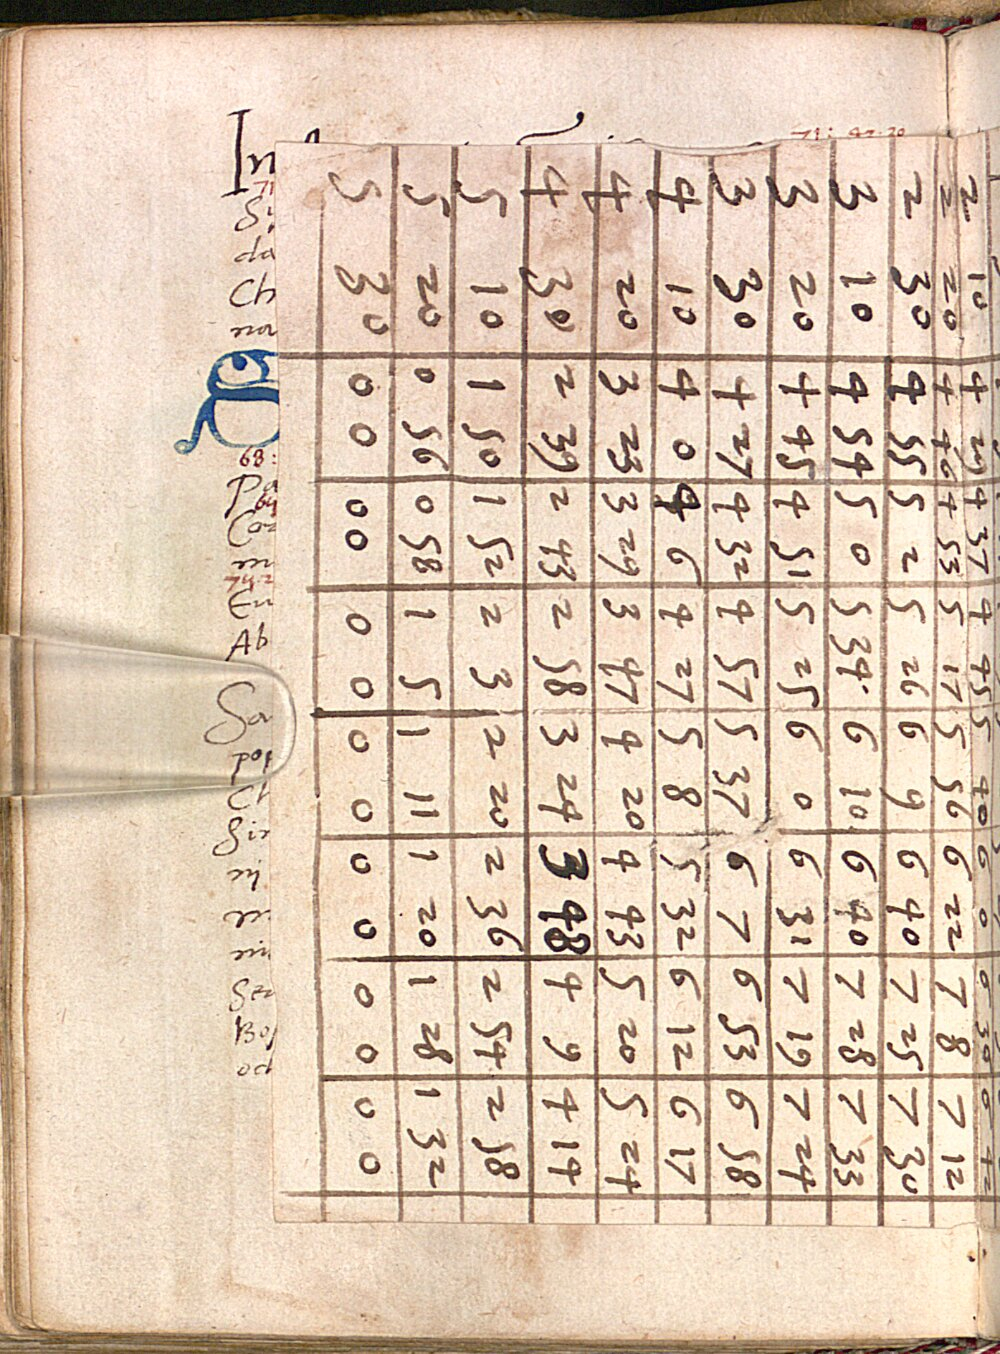 71: 42.20
In
71
Si
da
Ch
nor
68:
Pa
69
Con
m
74.2
Eu
Ab
Sa
pop
Ch
Sir
nj
m
mi
Ser
Bo
od
2 10 4 29 4 37 4 45 5 40 6 0 6 30 6 42
2 20 4 46 4 53 5 17 5 56 6 22 7 8 7 12
2 30 4 55 5 2 5 26 6 9 6 40 7 25 7 30
3 10 4 54 5 0 5 34 6 10 6 40 7 28 7 33
3 20 4 45 4 51 5 25 6 0 6 31 7 19 7 24
3 30 4 27 4 32 4 57 5 37 6 7 6 53 6 58
4 10 4 0 4 6 4 27 5 8 5 32 6 12 6 17
4 20 3 23 3 29 3 47 4 20 4 43 5 20 5 24
4 30 2 39 2 43 2 58 3 24 3 48 4 9 4 14
5 10 1 50 1 52 2 3 2 20 2 36 2 54 2 58
5 20 0 56 0 58 1 5 1 11 1 20 1 28 1 32
5 30 0 0 0 0 0 0 0 0 0 0 0 0 0 0